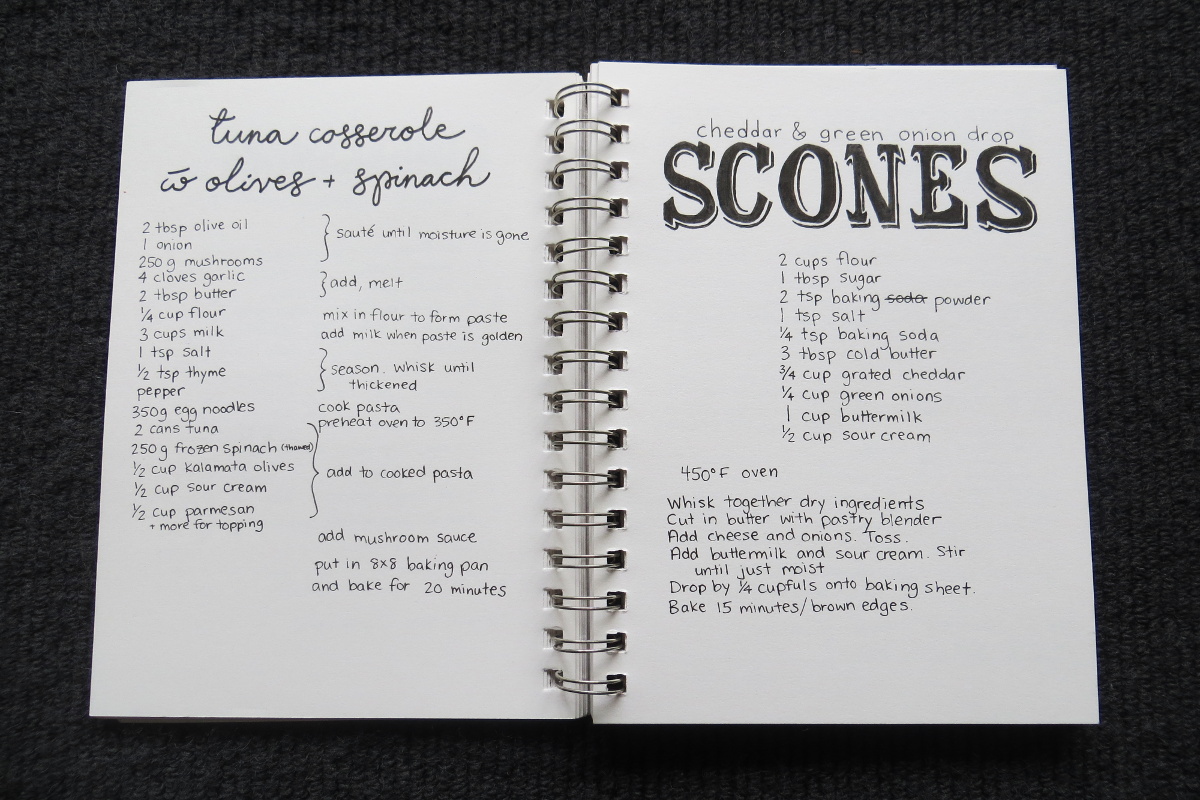 tuna casserole
c̄ olives + spinach
2 tbsp olive oil
1 onion
250 g mushrooms
} sauté until moisture is gone
4 cloves garlic
2 tbsp butter
} add, melt
1/4 cup flour
mix in flour to form paste
3 cups milk
add milk when paste is golden
1 tsp salt
1/2 tsp thyme
pepper
} season. whisk until
thickened
350g egg noodles
cook pasta
preheat oven to 350°F
2 cans tuna
250 g frozen spinach (thawed)
1/2 cup kalamata olives
1/2 cup sour cream
1/2 cup parmesan
+ more for topping
} add to cooked pasta
add mushroom sauce
put in 8x8 baking pan
and bake for 20 minutes
cheddar & green onion drop
SCONES
2 cups flour
1 tbsp sugar
2 tsp baking soda powder
1 tsp salt
1/4 tsp baking soda
3 tbsp cold butter
3/4 cup grated cheddar
1/4 cup green onions
1 cup buttermilk
1/2 cup sour cream
450°F oven
Whisk together dry ingredients
Cut in butter with pastry blender
Add cheese and onions. Toss.
Add buttermilk and sour cream. Stir
until just moist
Drop by 1/4 cupfuls onto baking sheet.
Bake 15 minutes/brown edges.